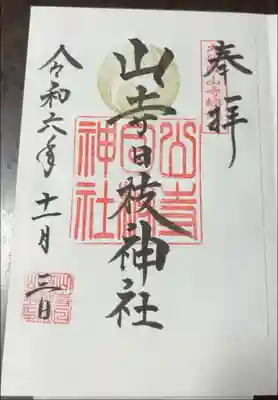 奉拝
山寺日枝神社
令和六年十一月三日
山寺
日枝
神社